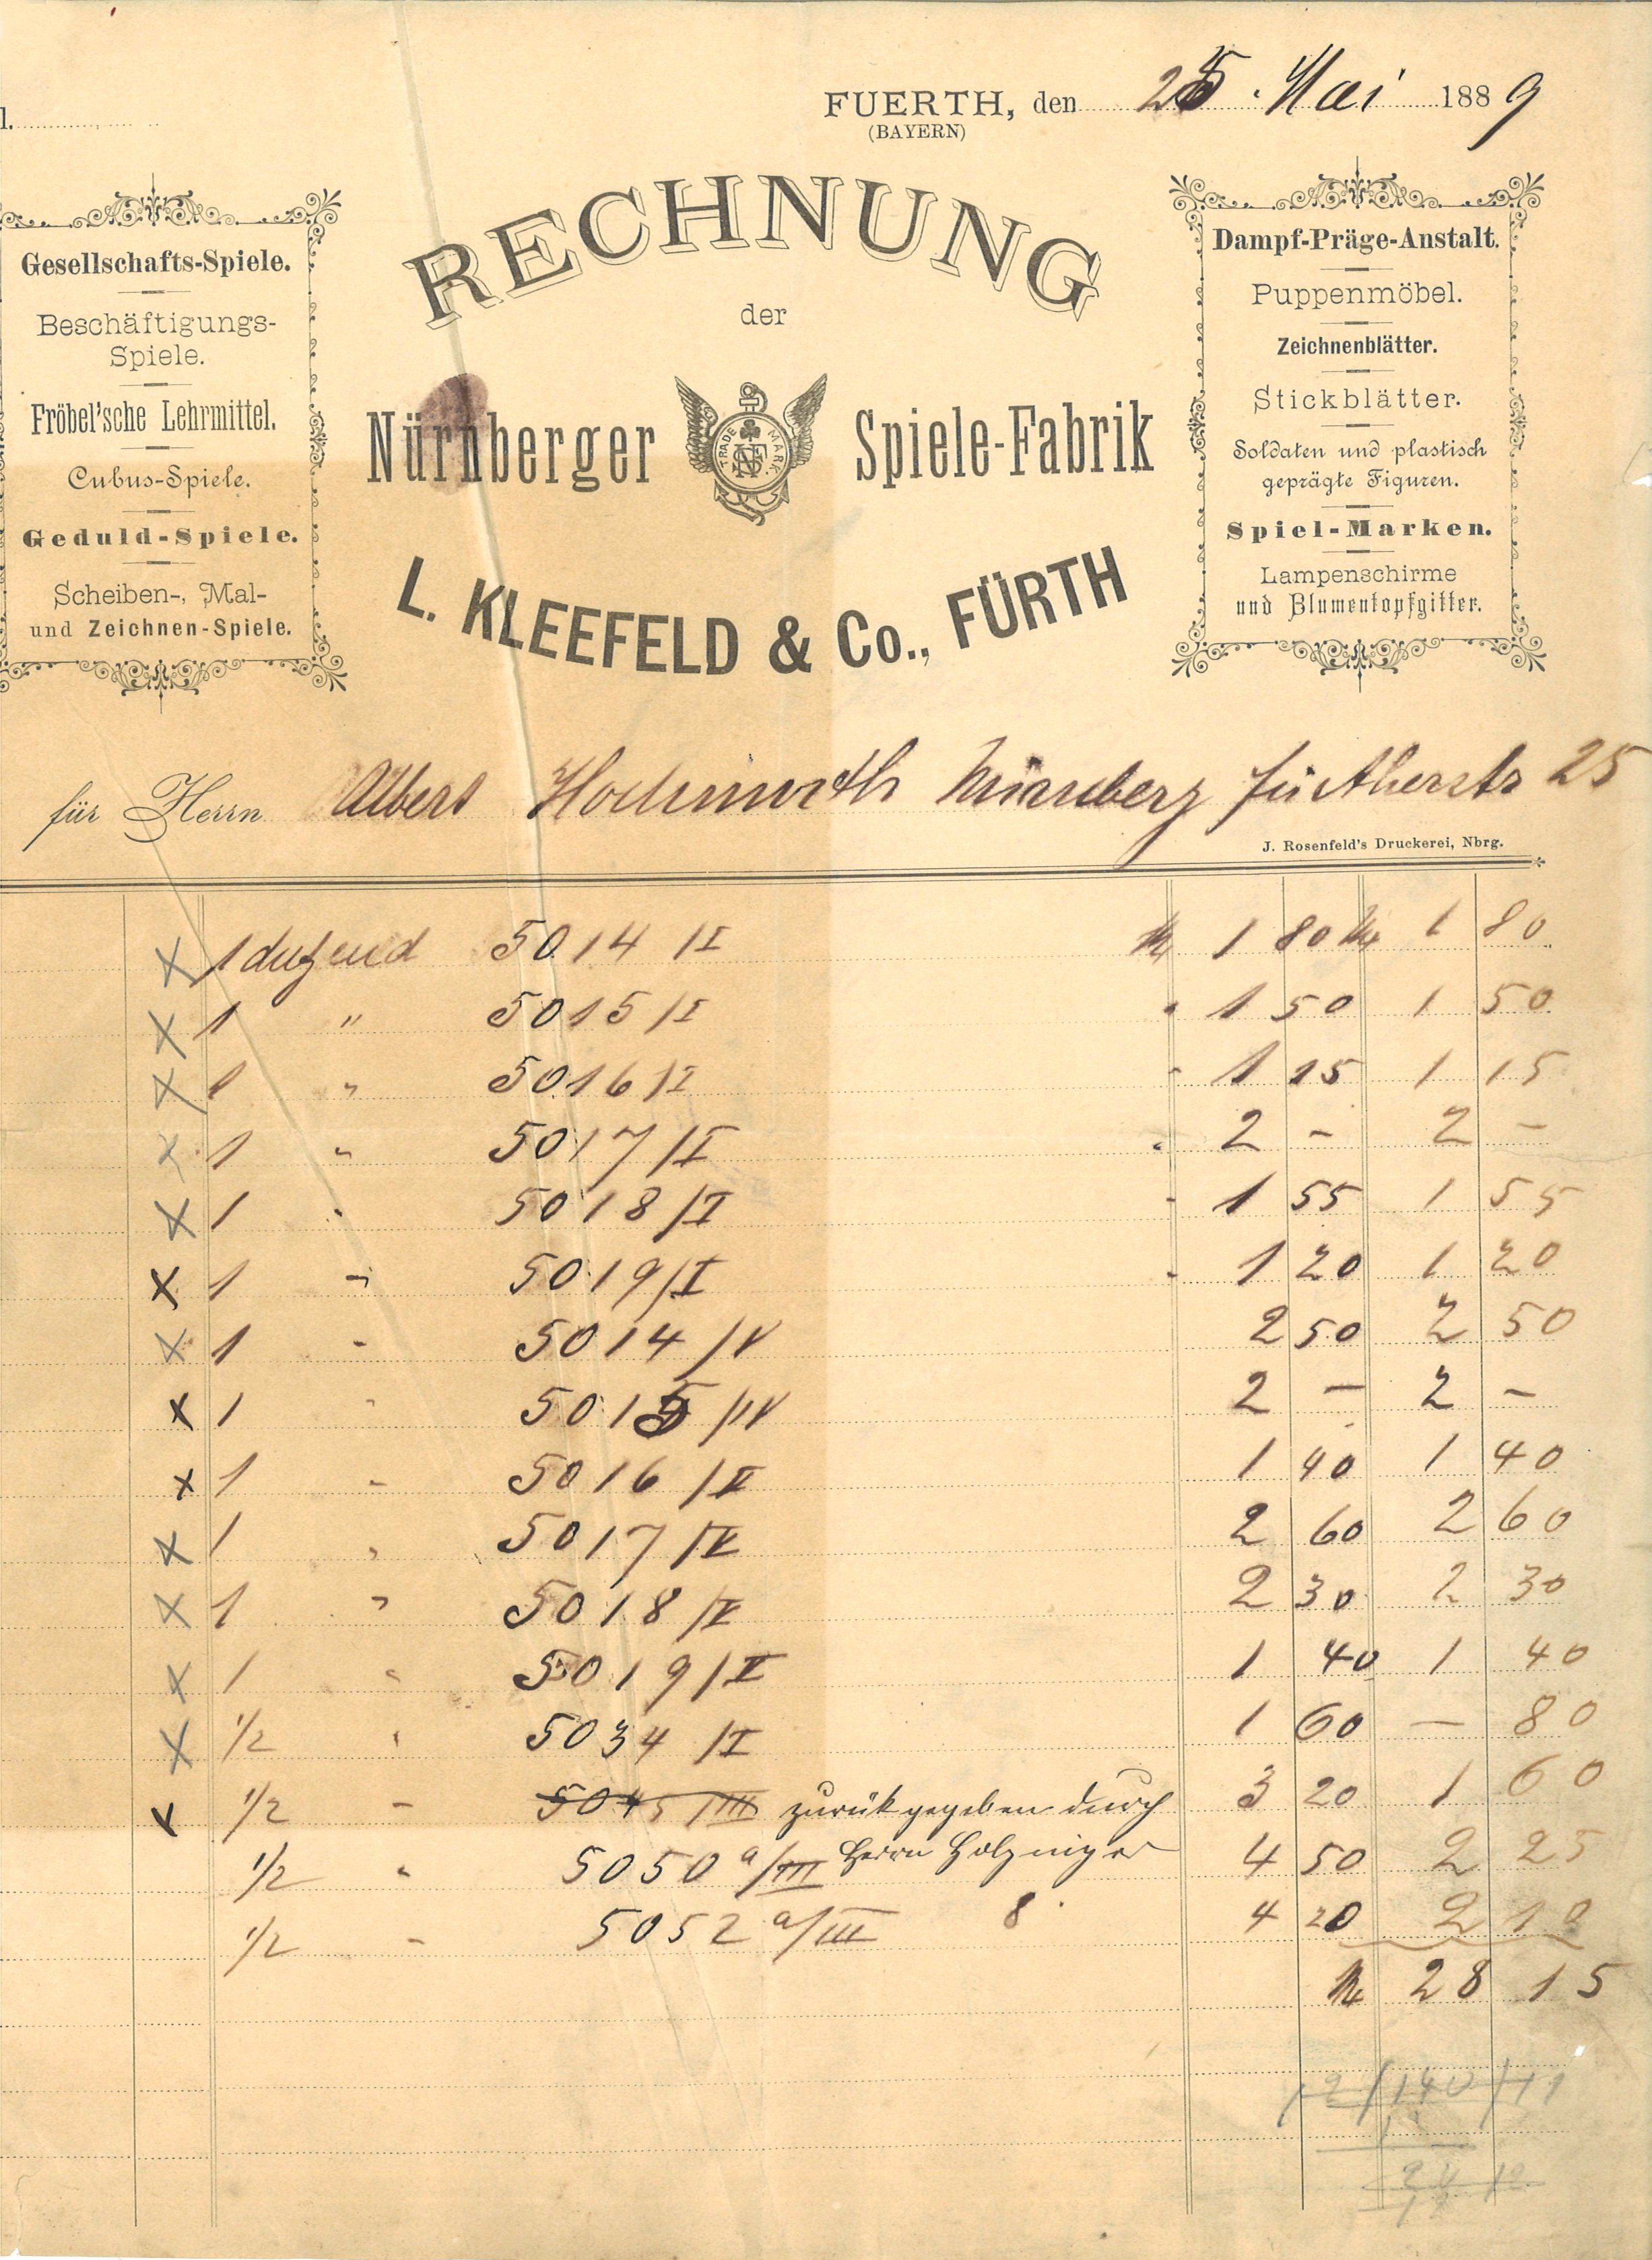 FUERTH, den 25. Mai 1889
(BAYERN)
RECHNUNG
der
Nürnberger Spiele-Fabrik
TRADE MARK
L. KLEEFELD & Co., FÜRTH
Gesellschafts-Spiele.
Beschäftigungs-
Spiele.
Fröbel'sche Lehrmittel.
Cubus-Spiele.
Geduld-Spiele.
Scheiben-, Mal-
und Zeichnen-Spiele.
Dampf-Präge-Anstalt.
Puppenmöbel.
Zeichnenblätter.
Stickblätter.
Soldaten und plastisch
geprägte Figuren.
Spiel-Marken.
Lampenschirme
und Blumentopfgitter.
für Herrn Albert Nürnberg Fürtherstr 25
J. Rosenfeld's Druckerei, Nbrg.
x 1 dutzend 5014 /I M 1 80 M 1 80
x 1 " 5015 /I " 1 50 1 50
x 1 " 5016 /I " 1 15 1 15
x 1 " 5017 /I " 2 - 2 -
x 1 " 5018 /I " 1 55 1 55
x 1 " 5019 /I " 1 20 1 20
x 1 " 5014 /V 2 50 2 50
x 1 " 5015 /IV 2 - 2 -
x 1 " 5016 /II 1 40 1 40
x 1 " 5017 /IV 2 60 2 60
x 1 " 5018 /V 2 30 2 30
x 1 " 5019 /II 1 40 1 40
x 1/2 " 5034 /I 1 60 - 80
1/2 " 5045 /III zurück gegeben durch 3 20 1 60
1/2 " 5050 a/III Herrn 4 50 2 25
1/2 " 5052 a/III 8 4 20 2 10
M 28 15
12/140/11